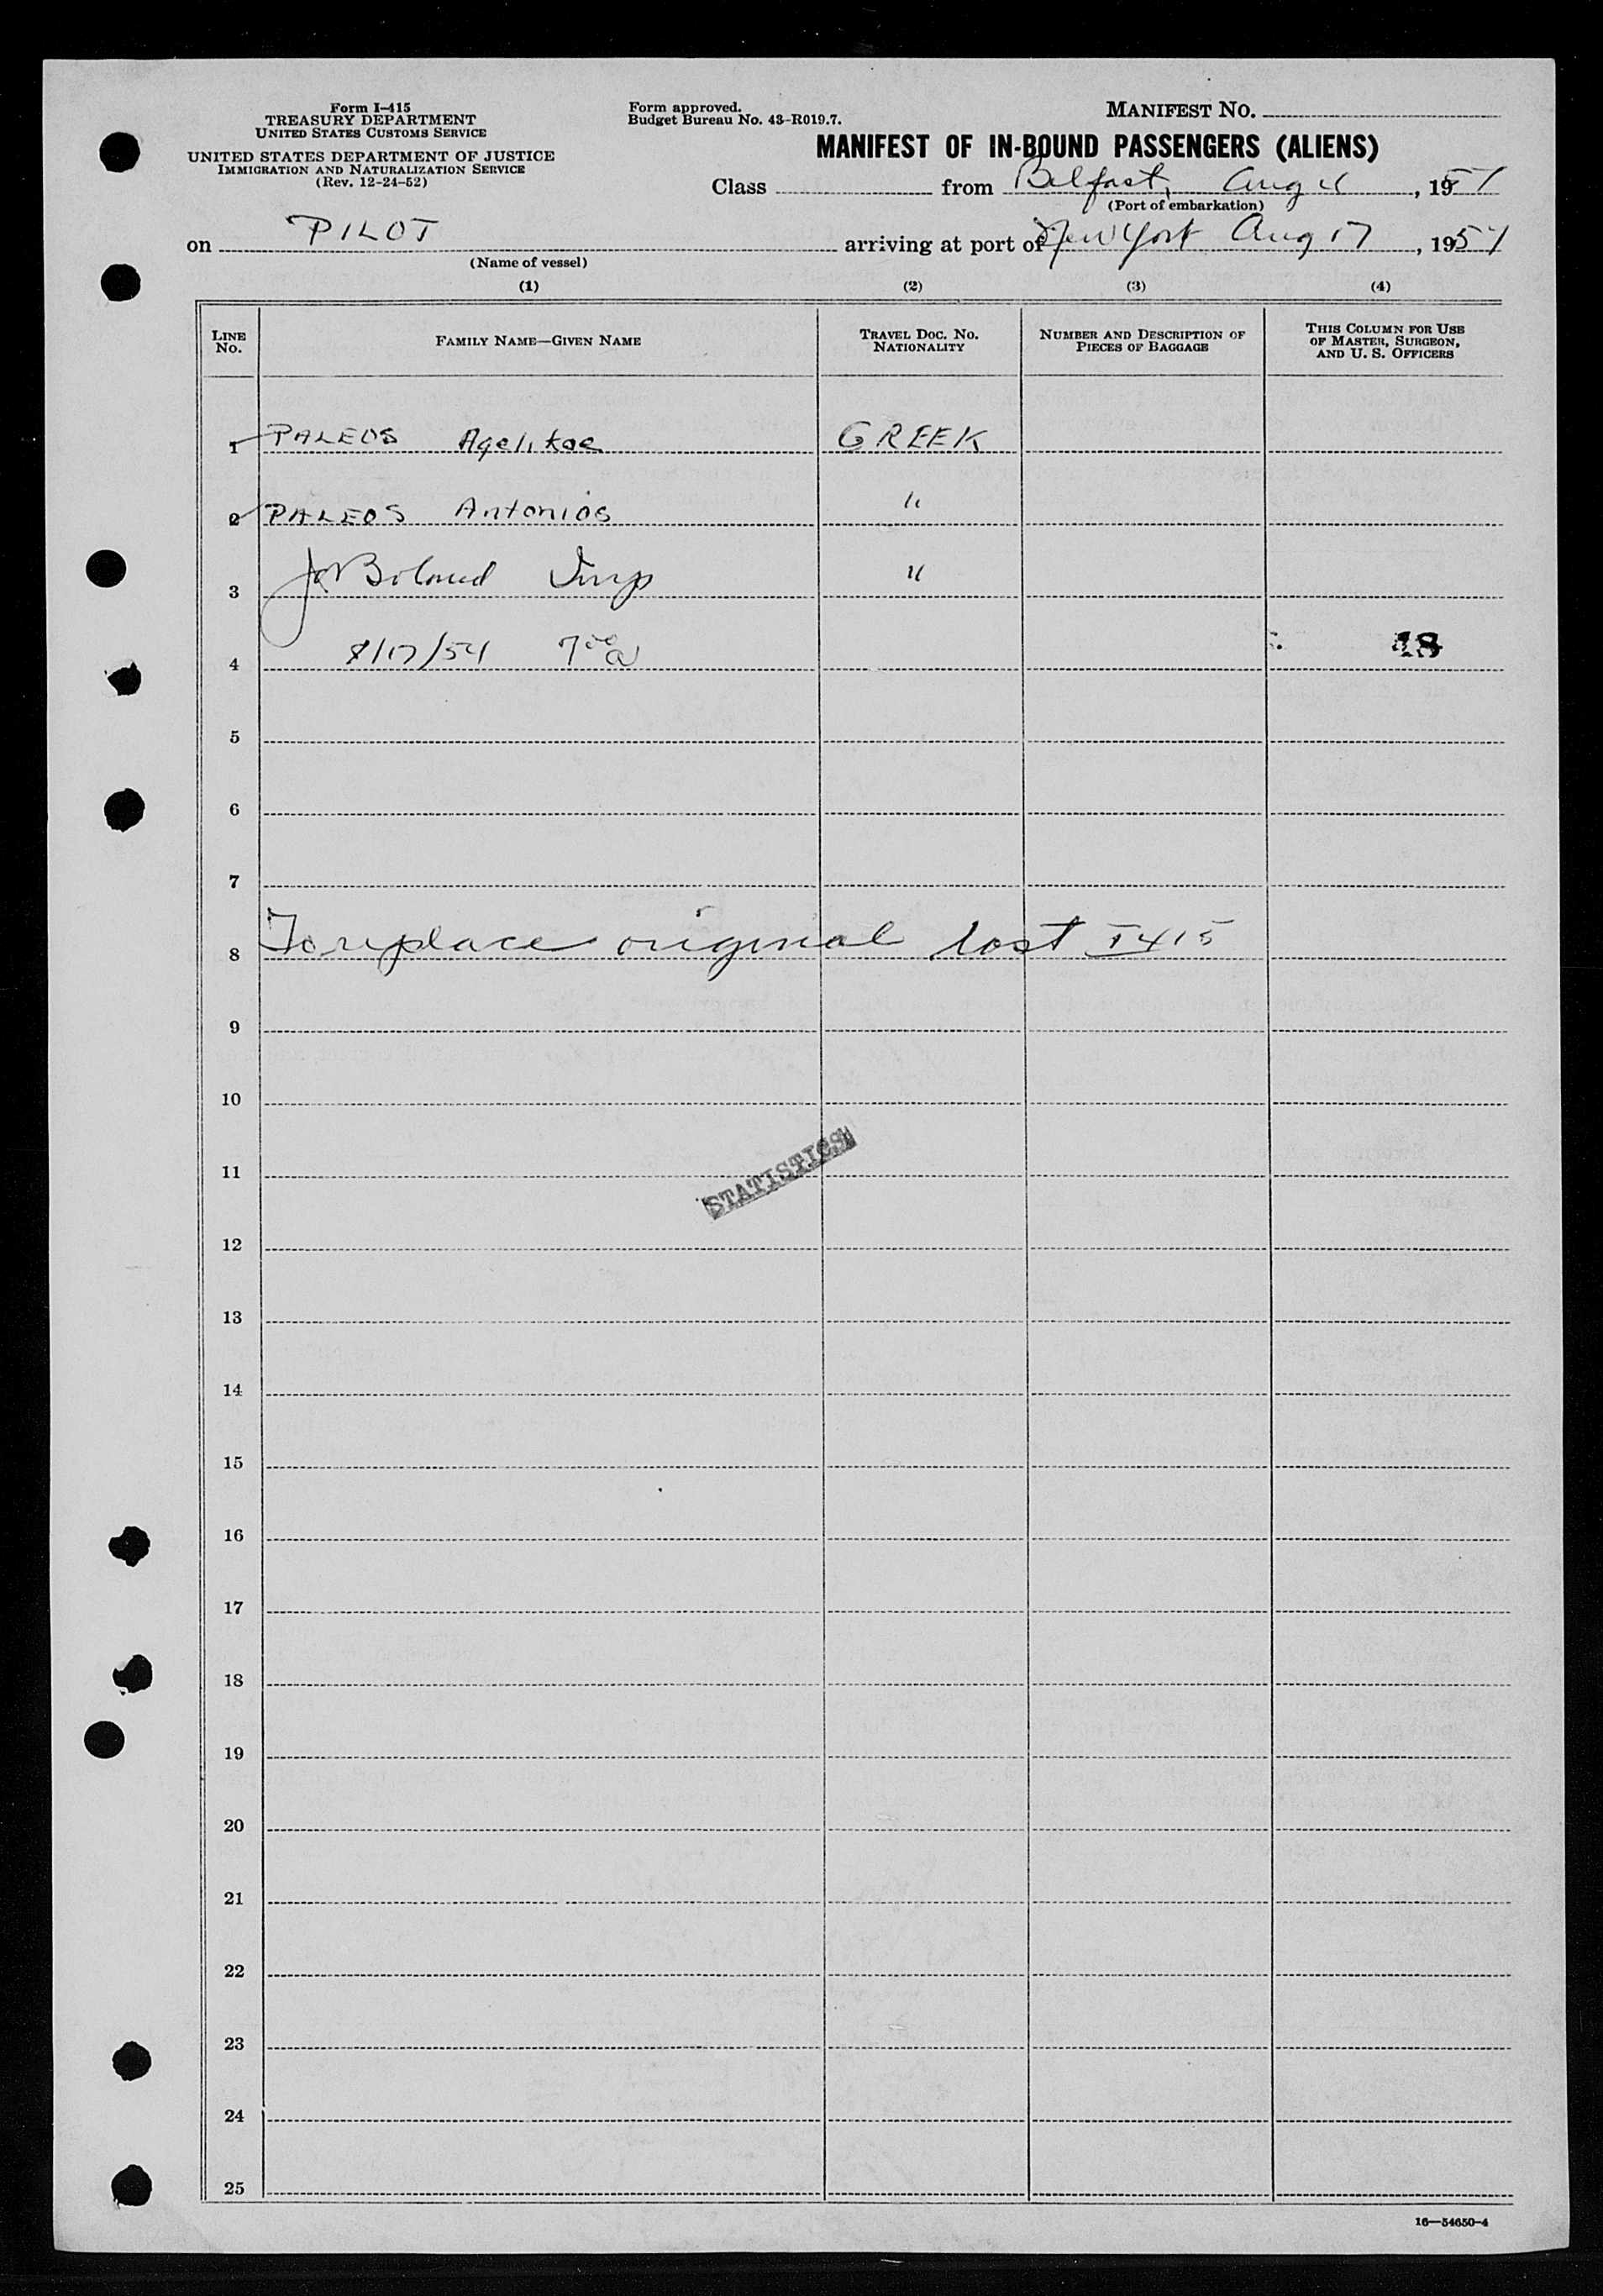 Form I-415
TREASURY DEPARTMENT
UNITED STATES CUSTOMS SERVICE
UNITED STATES DEPARTMENT OF JUSTICE
IMMIGRATION AND NATURALIZATION SERVICE
(Rev. 12-24-52)
Form approved.
Budget Bureau No. 43-R019.7.
MANIFEST NO.
MANIFEST OF IN-BOUND PASSENGERS (ALIENS)
Class from Belfast, Aug , 1954
(Port of embarkation)
on PILOT arriving at port of New York Aug 17, 1954
(Name of vessel)
(1) (2) (3) (4)
LINE NO.
FAMILY NAME—GIVEN NAME
TRAVEL DOC. NO.
NATIONALITY
NUMBER AND DESCRIPTION OF
PIECES OF BAGGAGE
THIS COLUMN FOR USE
OF MASTER, SURGEON,
AND U. S. OFFICERS
1 PALEOS Agelikoe GREEK
2 PALEOS Antonios "
3 Insp "
4 8/17/54 700 a 18
5
6
7
8 To replace original lost I 415
9
10
11
STATISTICS
12
13
14
15
16
17
18
19
20
21
22
23
24
25
16—54650-4